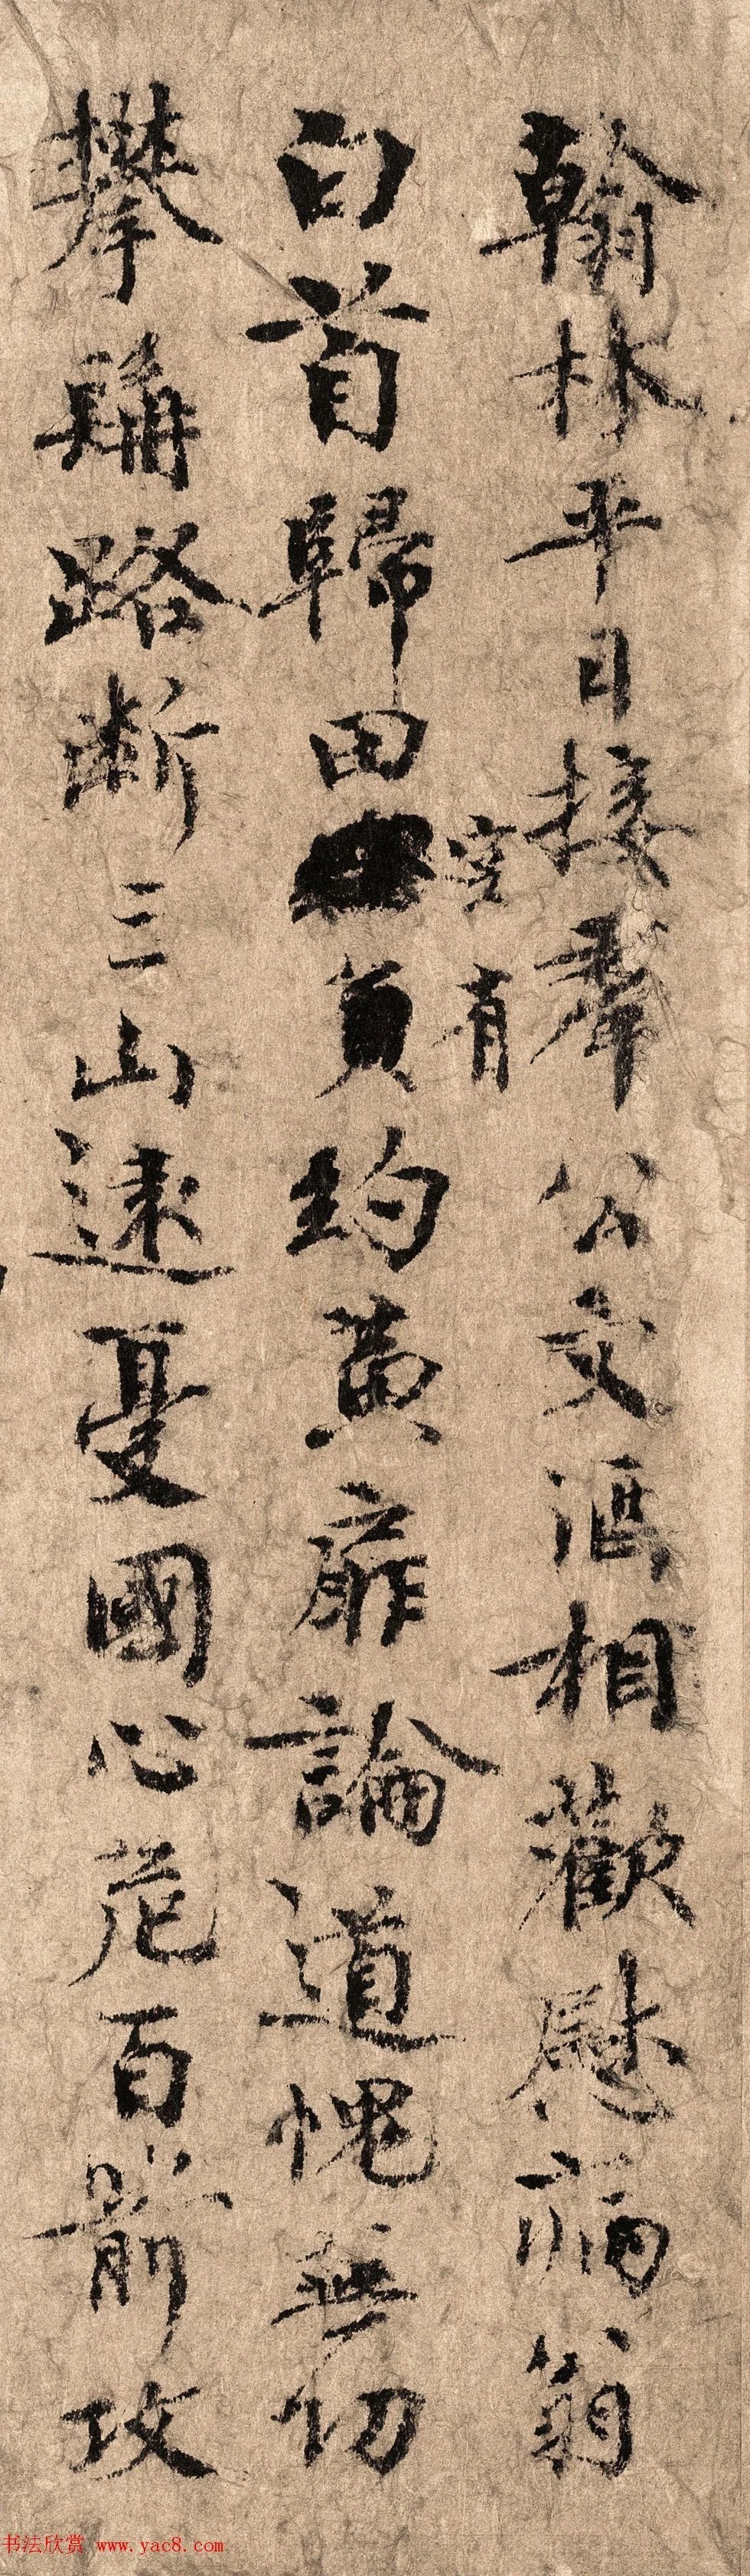 翰林平日接羣公文酒相歡慰病翁
白首歸田空有約黃扉論道愧無功
攀髯路斷三山遠憂國心危百箭攻
书法欣赏 www.yac8.com